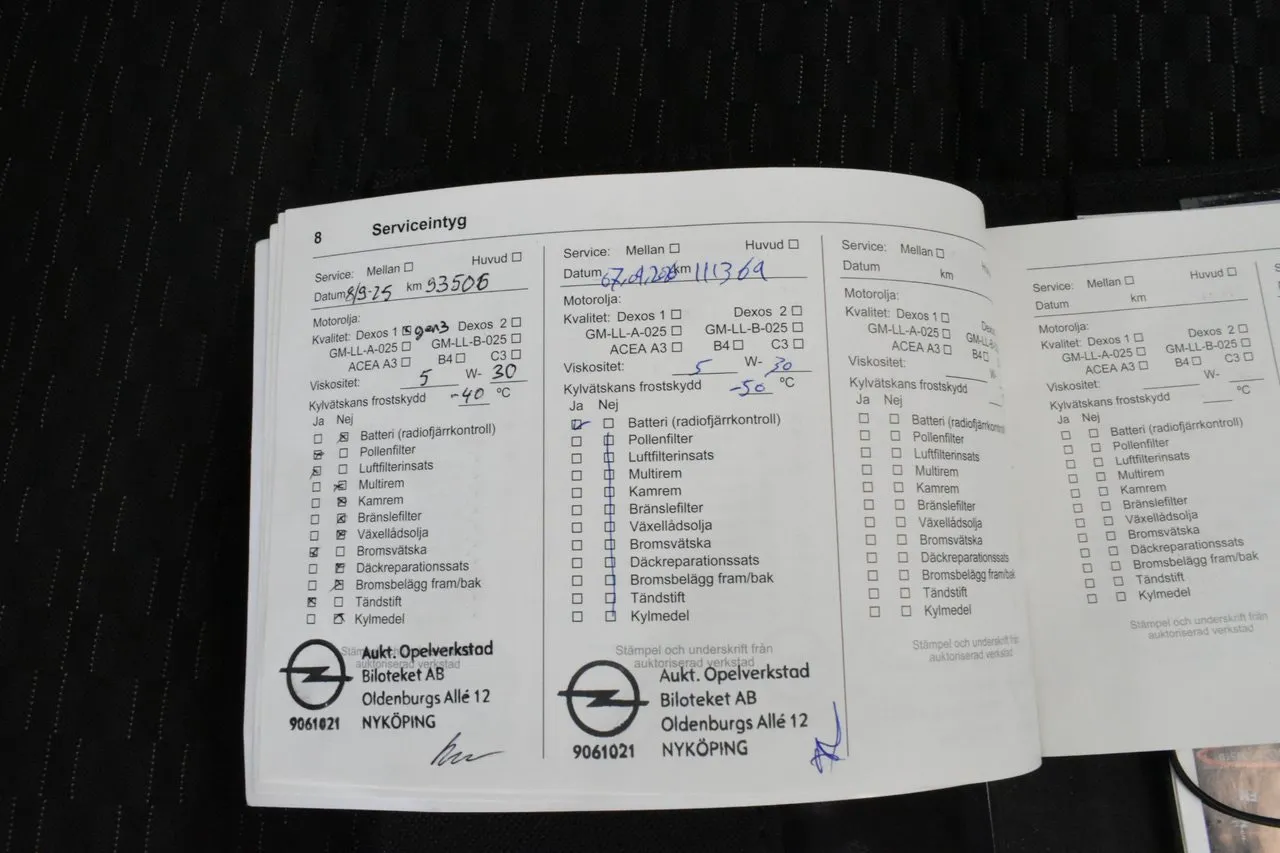 8 Serviceintyg
Service: Mellan ☐ Huvud ☐
Datum 8/9-25 km 93506
Motorolja:
Kvalitet: Dexos 1 ☒ gen3 Dexos 2 ☐
GM-LL-A-025 ☐ GM-LL-B-025 ☐
ACEA A3 ☐ B4 ☐ C3 ☐
Viskositet: 5 W- 30
Kylvätskans frostskydd -40 °C
Ja Nej
☐ ☒ Batteri (radiofjärrkontroll)
☒ ☐ Pollenfilter
☒ ☐ Luftfilterinsats
☐ ☒ Multirem
☐ ☒ Kamrem
☐ ☒ Bränslefilter
☐ ☒ Växellådsolja
☒ ☐ Bromsvätska
☐ ☒ Däckreparationssats
☐ ☒ Bromsbelägg fram/bak
☒ ☐ Tändstift
☐ ☒ Kylmedel
Aukt. Opelverkstad
auktoriserad verkstad
Biloteket AB
Oldenburgs Allé 12
9061021 NYKÖPING
Service: Mellan ☐ Huvud ☐
Datum km 111369
Motorolja:
Kvalitet: Dexos 1 ☐ Dexos 2 ☐
GM-LL-A-025 ☐ GM-LL-B-025 ☐
ACEA A3 ☐ B4 ☐ C3 ☐
Viskositet: 5 W- 30
Kylvätskans frostskydd -50 °C
Ja Nej
☑ ☐ Batteri (radiofjärrkontroll)
☐ ☐ Pollenfilter
☐ ☐ Luftfilterinsats
☐ ☐ Multirem
☐ ☐ Kamrem
☐ ☐ Bränslefilter
☐ ☐ Växellådsolja
☐ ☐ Bromsvätska
☐ ☐ Däckreparationssats
☐ ☐ Bromsbelägg fram/bak
☐ ☐ Tändstift
☐ ☐ Kylmedel
Stämpel och underskrift från
auktoriserad verkstad
Aukt. Opelverkstad
Biloteket AB
Oldenburgs Allé 12
9061021 NYKÖPING
Service: Mellan ☐ Huvud ☐
Datum km
Motorolja:
Kvalitet: Dexos 1 ☐
GM-LL-A-025 ☐
ACEA A3 ☐ B4 ☐
Viskositet:
Kylvätskans frostskydd
Ja Nej
☐ ☐ Batteri
☐ ☐ Pollenfilter
☐ ☐ Luftfilterinsats
☐ ☐ Multirem
☐ ☐ Kamrem
☐ ☐ Bränslefilter
☐ ☐ Växellådsolja
☐ ☐ Bromsvätska
☐ ☐ Däckreparationssats
☐ ☐ Bromsbelägg fram/bak
☐ ☐ Tändstift
☐ ☐ Kylmedel
Stämpel och underskrift
auktoriserad verkstad
Service: Mellan ☐ Huvud ☐
Datum km
Motorolja:
Kvalitet: Dexos 1 ☐ Dexos 2 ☐
GM-LL-A-025 ☐ GM-LL-B-025 ☐
ACEA A3 ☐ B4 ☐ C3 ☐
Viskositet: W-
Kylvätskans frostskydd °C
Ja Nej
☐ ☐ Batteri (radiofjärrkontroll)
☐ ☐ Pollenfilter
☐ ☐ Luftfilterinsats
☐ ☐ Multirem
☐ ☐ Kamrem
☐ ☐ Bränslefilter
☐ ☐ Växellådsolja
☐ ☐ Bromsvätska
☐ ☐ Däckreparationssats
☐ ☐ Bromsbelägg fram/bak
☐ ☐ Tändstift
☐ ☐ Kylmedel
Stämpel och underskrift från
auktoriserad verkstad